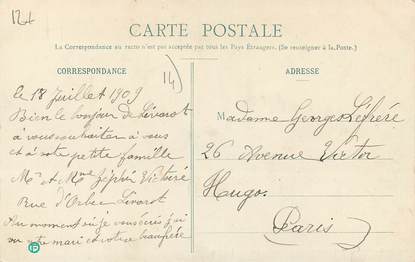 12+
CARTE POSTALE
La Correspondance au recto n'est pas acceptée par tous les Pays Étrangers. (Se renseigner à la Poste.)
CORRESPONDANCE
14)
le 18 Juillet 1909
Bien le bonjour de Livarot
à vous souhaiter à vous
et à votre petite famille
Mr et Mme Zéphir Victoré
Rue d'Orbec Livarot
Au moment où je vous écris j'ai
vu votre mari et votre beaufrère
ADRESSE
Madame Georges Léfréré
26 Avenue Victor
Hugo
(Paris)